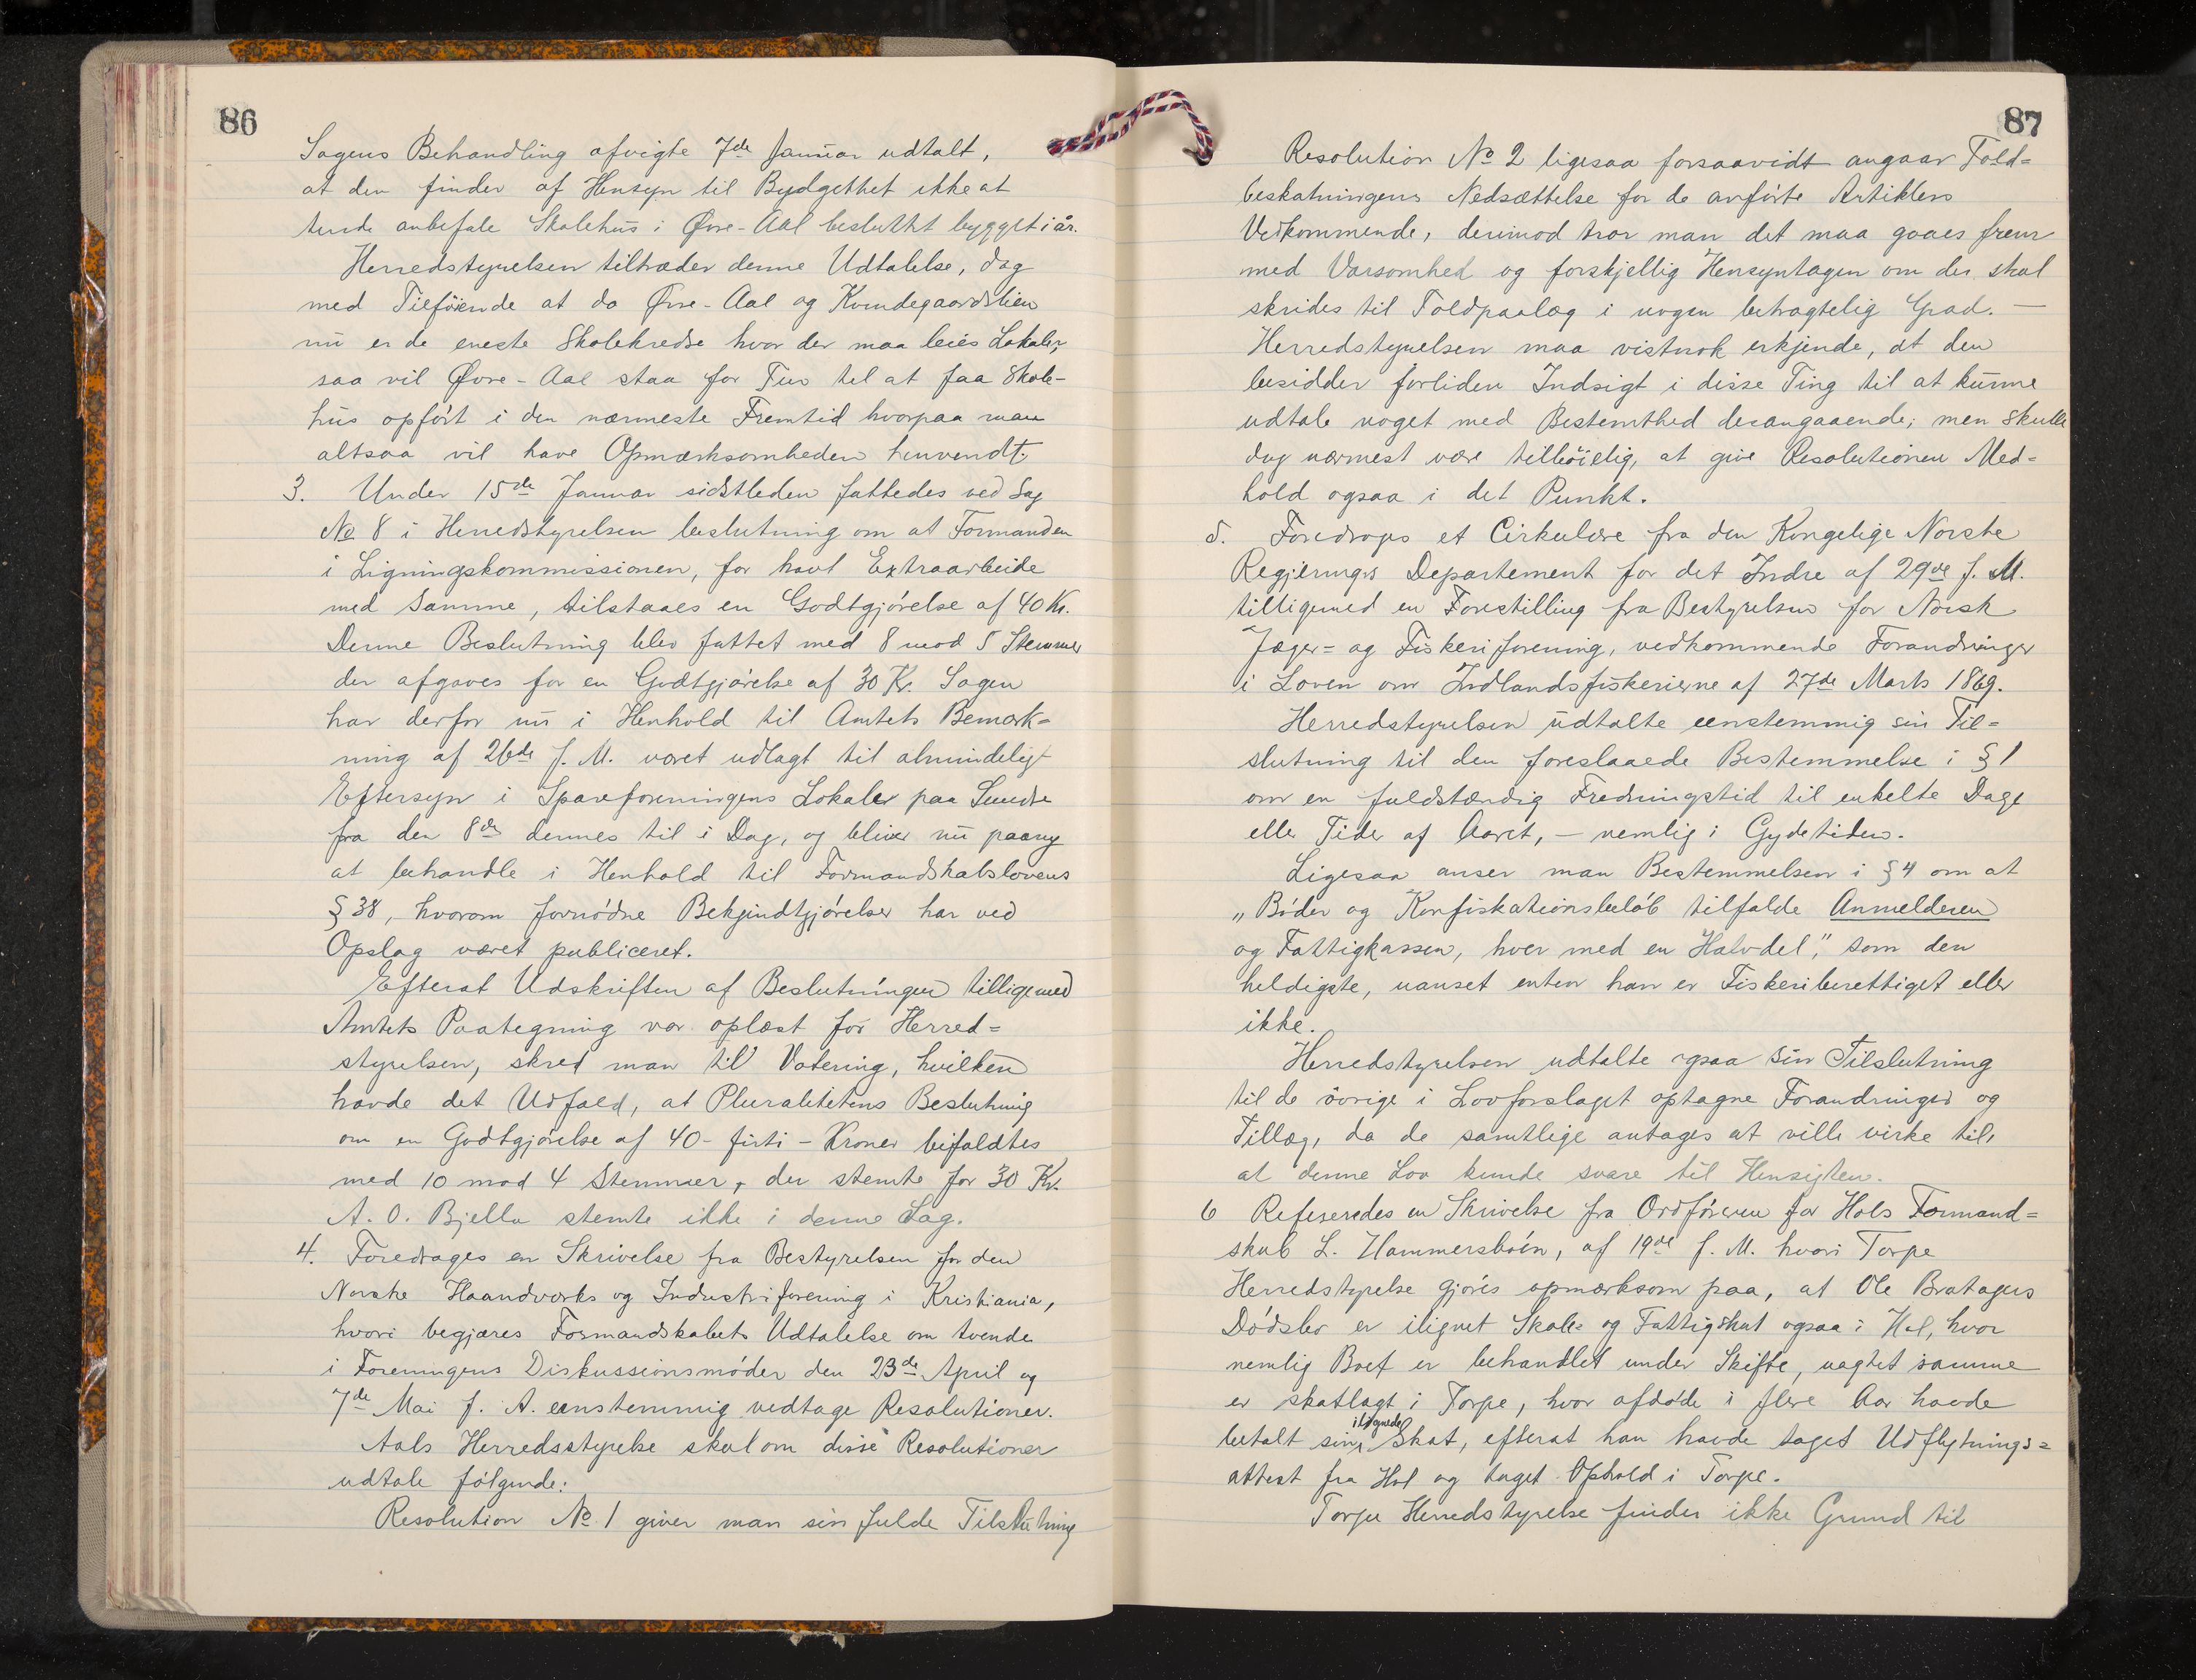 86
Sagens Behandling afvigte 7de Januar udtalt,
at den finder af Hensyn til Budgettet ikke at
turde anbefale Skolehus i Øvre-Aal besluttet bygget i år.
Herredstyrelsen tiltræder denne Udtalelse, dog
med Tilføiende at da Øvre-Aal og Kvindegaardslien
nu er de eneste Skolekredse hvor der maa leies Lokaler,
saa vil Øvre-Aal staa for Tur til at faa Skole-
hus opført i den nærmeste Fremtid hvorpaa man
altsaa vil have Opmærksomheden henvendt.
3. Under 15de Januar sidstleden fattedes ved Sag
No 8 i Herredstyrelsen beslutning om at Formanden
i Ligningskommissionen, for havt Extraarbeide
med Samme, tilstaaes en Godtgjørelse af 40 Kr.
Denne Beslutning blev fattet med 8 mod 5 Stemmer
der afgaves for en Godtgjørelse af 30 Kr. Sagen
har derfor nu i Henhold til Amtets Bemærk=
ning af 26de f. M. været udlagt til almindeligt
Eftersyn i Spareforeningens Lokaler paa Sundre
fra den 8de dennes til i Dag, og bliver nu paany
at behandle i Henhold til Formandskabslovens
§ 38, hvorom fornødne Bekjendtgjørelser har ved
Opslag været publiceret.
Efterat Udskriften af Beslutningen tilligemed
Amtets Paategning var oplæst for Herred=
styrelsen, skred man til Votering, hvilken
havde det Udfald, at Pluralitetens Beslutning
om en Godtgjørelse af 40- firti - Kroner bifaldtes
med 10 mod 4 Stemmer, der stemte for 30 Kr.
A. O. Bjella stemte ikke i denne Sag.
4. Foredrages en Skrivelse fra Bestyrelsen for den
Norske Haandværks og Industriforening i Kristiania,
hvori begjæres Formandskabets Udtalelse om tvende
i Foreningens Diskussionsmøder den 23de April og
7de Mai f. A. eenstemmig vedtage Resolutioner.
Aals Herredsstyrelse skal om disse Resolutioner
udtale følgende:
Resolution No 1 giver man sin fulde Tilslutning
87
Resolution No 2 ligesaa forsaavidt angaar Told=
beskatningens Nedsættelse for de anførte Artiklers
Vedkommende, derimod tror man det maa gaaes frem
med Varsomhed og forskjellig Hensyntagen om der skal
skrides til Toldpaalæg i nogen betragtelig Grad. —
Herredstyrelsen maa vistnok erkjende, at den
besidder forliden Indsigt i disse Ting til at kunne
udtale noget med Bestemthed desangaaende; men skulle
dog nærmest være tilbøielig, at give Resolutionen Med=
hold ogsaa i det Punkt.
5. Foredroges et Cirkulære fra den Kongelige Norske
Regjerings Departement for det Indre af 29de f. M.
tilligemed en Forestilling fra Bestyrelsen for Norsk
Jæger= og Fiskeriforening, vedkommende Forandringer
i Loven om Indlandsfiskerierne af 27de Marts 1869.
Herredstyrelsen udtalte eenstemmig sin Til=
slutning til den foreslaaede Bestemmelse i § 1
om en fuldstændig Fredningstid til enkelte Dage
eller Tider af Aaret, — nemlig i Gydetiden.
Ligesaa anser man Bestemmelsen i § 4 om at
„Bøder og Konfiskationsbeløb tilfalde Anmelderen
og Fattigkassen, hver med en Halvdel", som den
heldigste, uanset enten han er Fiskeriberettiget eller
ikke.
Herredstyrelsen udtalte ogsaa sin Tilslutning
til de øvrige i Lovforslaget optagne Forandringer og
Tillæg, da de samtlige antages at ville virke til,
at denne Lov kunde svare til Hensigten.
6 Refereredes en Skrivelse fra Ordføreren for Hols Formand=
skab L. Hammersbøen, af 19de f. M. hvori Torpe
Herredstyrelse gjøres opmærksom paa, at Ole Bratagers
Dødsbo er ilignet Skole= og Fattigskat ogsaa i Hol, hvor
nemlig Boet er behandlet under Skifte, uagtet samme
er skatlagt i Torpe, hvor afdøde i flere Aar havde
betalt sin ilignede Skat, efterat han havde taget Udflytnings=
attest fra Hol og taget Ophold i Torpe.
Torpe Herredstyrelse finder ikke Grund til